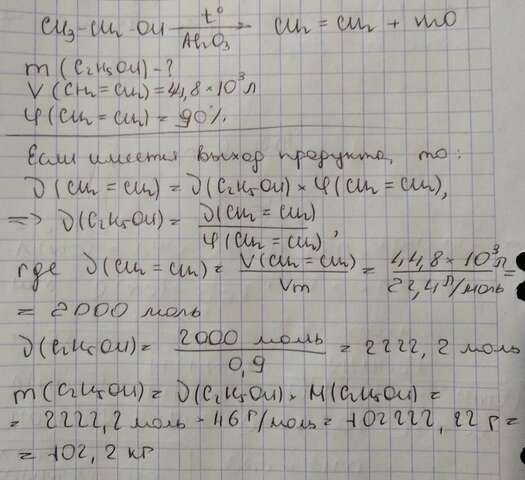 CH3-CH2-OH t° Al2O3 → CH2 = CH2 + H2O
m (C2H5OH) - ?
V (CH2 = CH2) = 44,8 × 10³ л
φ (CH2 = CH2) = 90%.
Если имеется выход продукта, то:
ν (CH2 = CH2) = ν (C2H5OH) × φ (CH2 = CH2),
=> ν (C2H5OH) = ν (CH2 = CH2) / φ (CH2 = CH2) ,
где ν (CH2 = CH2) = V (CH2 = CH2) / Vm = 44,8 × 10³ л / 22,4 л/моль =
= 2000 моль
ν (C2H5OH) = 2000 моль / 0,9 = 2222,2 моль
m (C2H5OH) = ν (C2H5OH) × M (C2H5OH) =
= 2222,2 моль · 46 г/моль = 102222,22 г =
= 102,2 кг